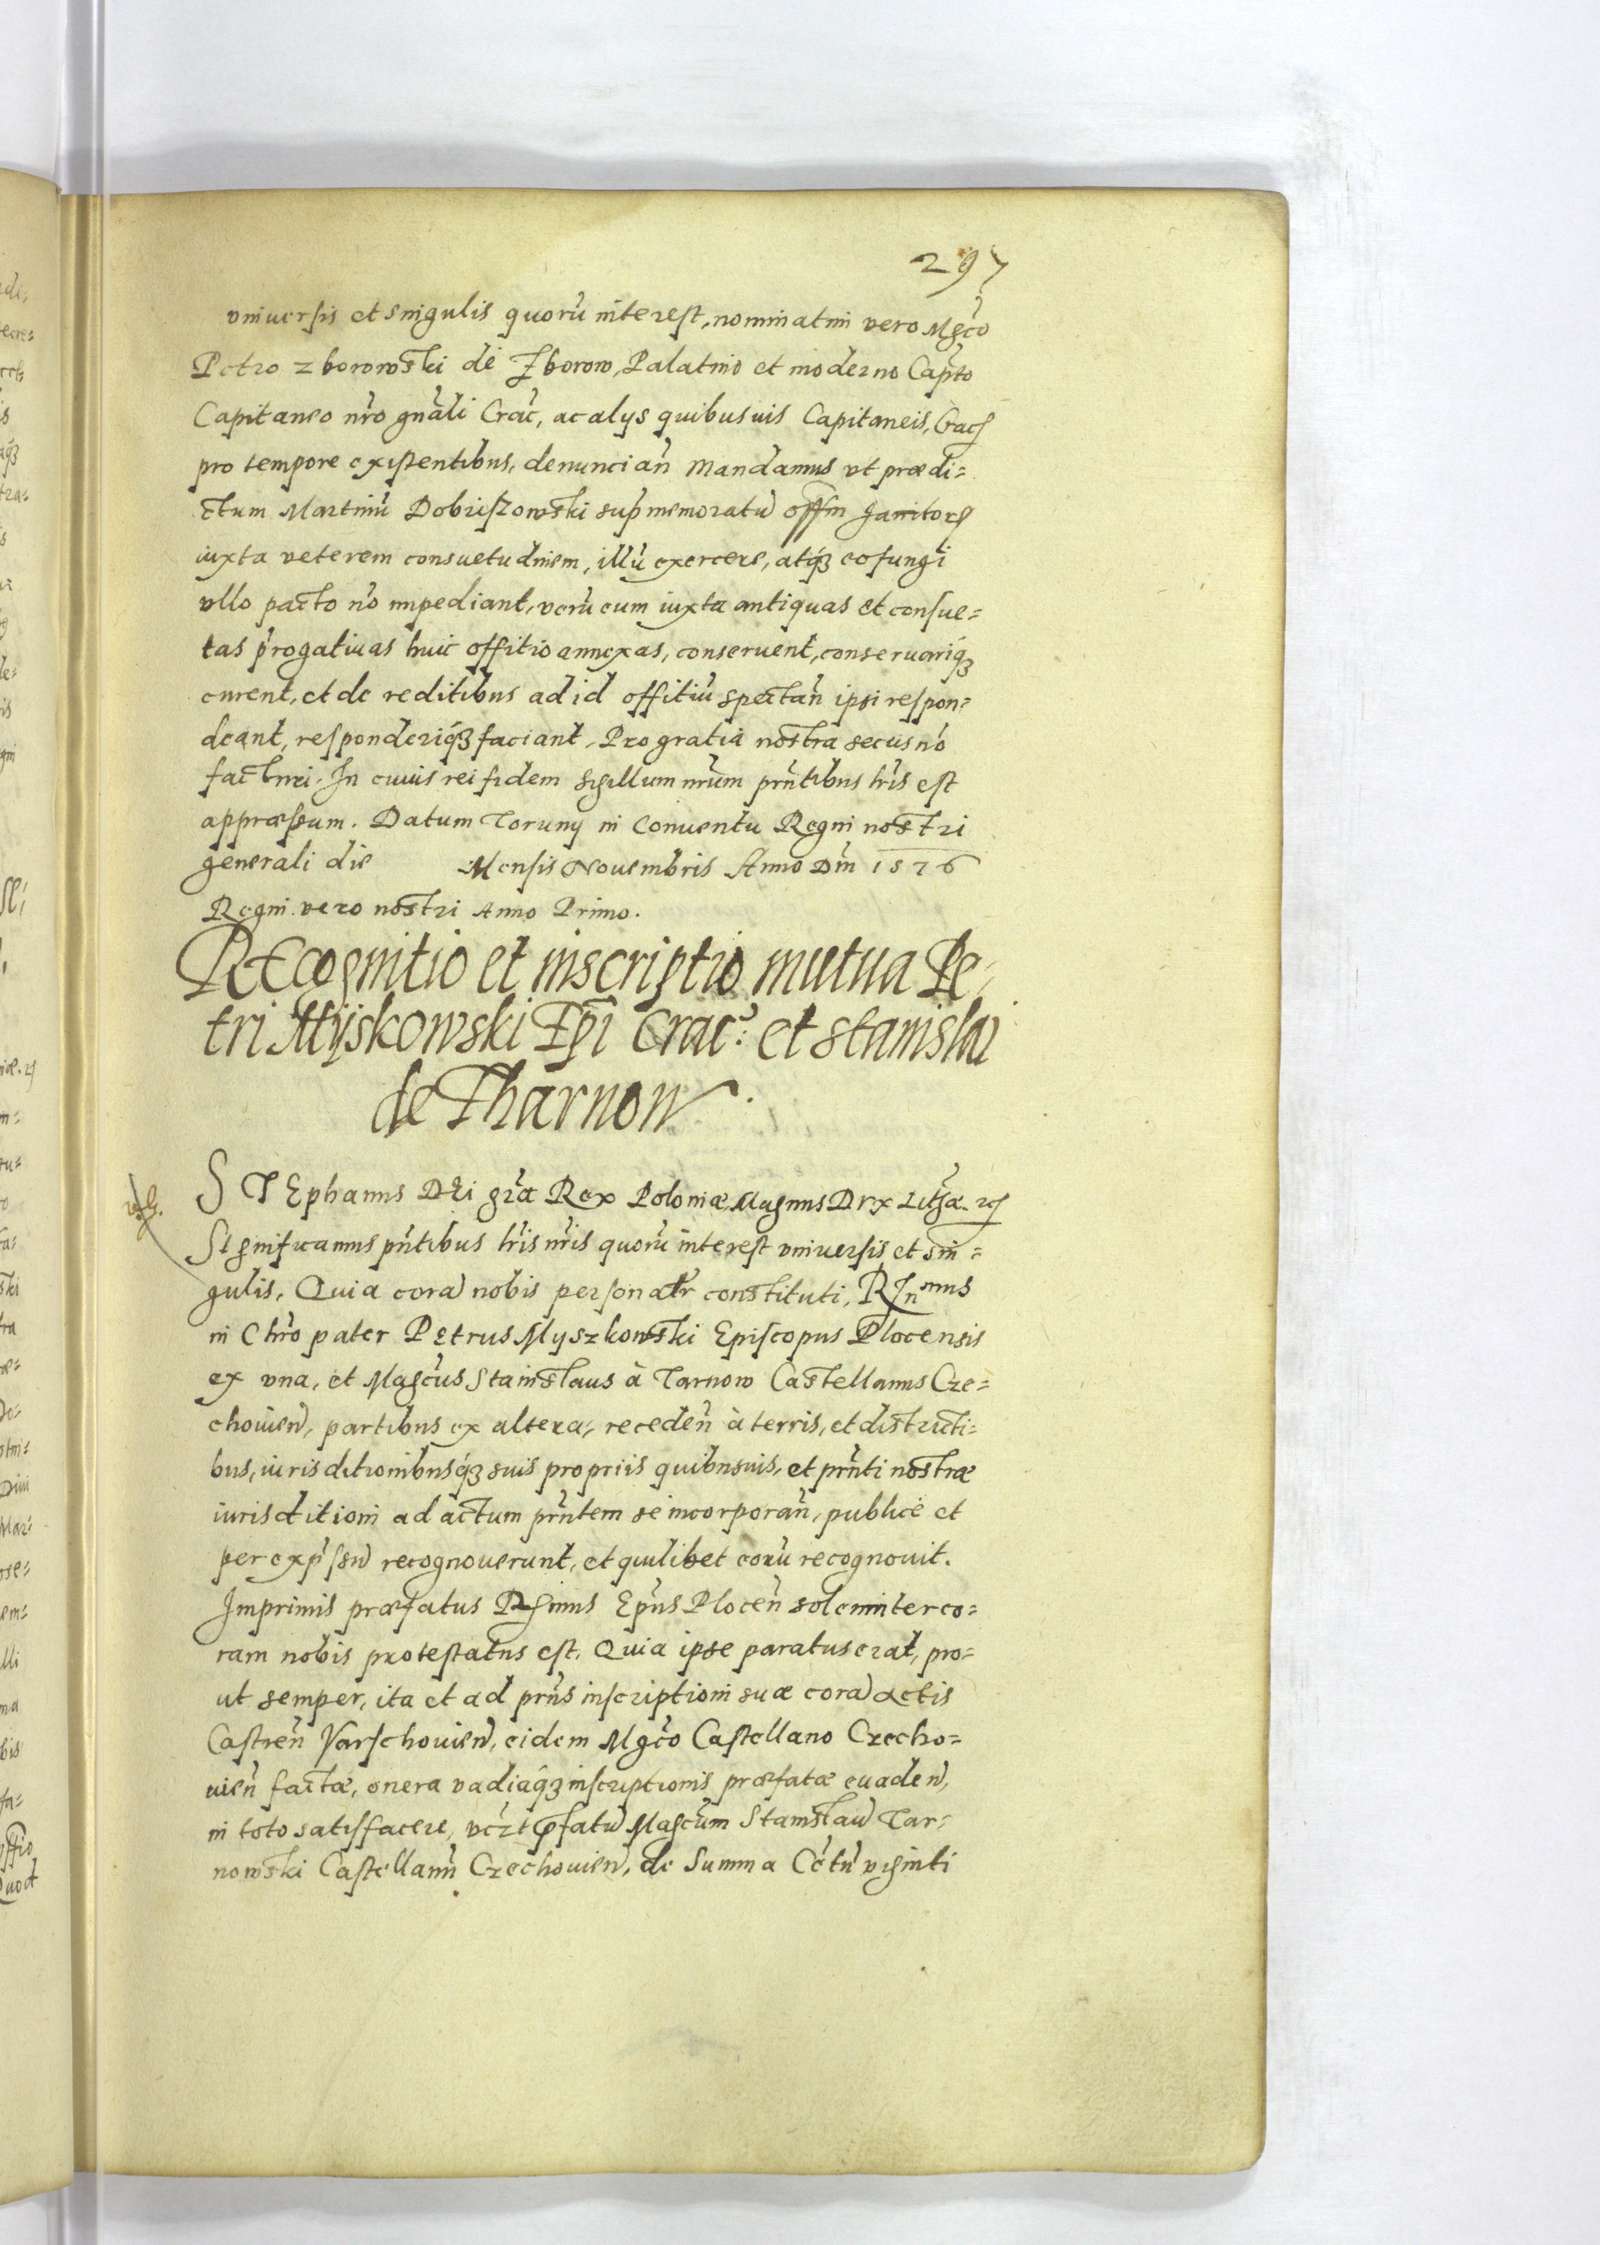 297
vniuersis et singulis quorū interest, nominatim vero Mgco
Petro Zborowski de Zborow, Palatino et moderno Capto
Capitaneo nro gnali Crac, ac alys quibusuis Capitaneis, Crac
pro tempore existentibus, denuncian̄ Mandamus vt prædi=
ctum Martinū Dobriszowski supmemoratū offm Janitors
iuxta veterem consuetudinem, illū exercere, atq̃ eo fungi
vllo pacto nō impediant, verū eum iuxta antiquas et consue=
tas progatiuas huic offitio annexas, conseruent, conseruariq̃
curent, et de reditibus ad id offitiū spectan̄ ipsi respon=
deant, responderiq̃ faciant, Pro gratia nostra secus nō
facturi. In cuius rei fidem sigillum nrum prntibus lris est
appræssum. Datum Toruny in Conuentu Regni nostri
generali die Mensis Nouembris Anno Dm̄ 1576
Regni vero nostri Anno Primo.
REcognitio et inscriptio mutua Pe=
tri Myskowski Epi Crac: et Stanislai
de Tharnow.
STEphanus DEi gra Rex Poloniæ, Magnus Dux Lithæ. rc
Significamus pntibus lris nris quorū interest vniuersis et sin=
gulis, Quia corā nobis personatr constituti, Rndmus
in Chro pater Petrus Myszkowski Episcopus Plocensis
ex vna, et Magcus Stanislaus à Tarnow Castellanus Cze=
chouien̄, partibus ex altera, receden̄ à terris, et districti=
bus, iurisditionibusq̃ suis propriis quibusuis, et prnti nostræ
iurisditioni ad actum prntem se incorporan̄, publice et
per expssū recognouerunt, et quilibet eorū recognouit.
Imprimis præfatus Rsimus Epus Plocen̄ solenniter co=
ram nobis protestatus est, Quia ipse paratus erat, pro=
ut semper, ita et ad prns inscriptioni suæ corā actis
Castren̄ Varschouien̄, eidem Mgco Castellano Czecho=
uien̄ factæ, onera vadiaq̃ inscriptionis præfatæ euaden̄,
in toto satisfacere, vczt pfatū Magcum Stanislaū Tar=
nowski Castellanū Czechouien̄, de Summa Cētū viginti